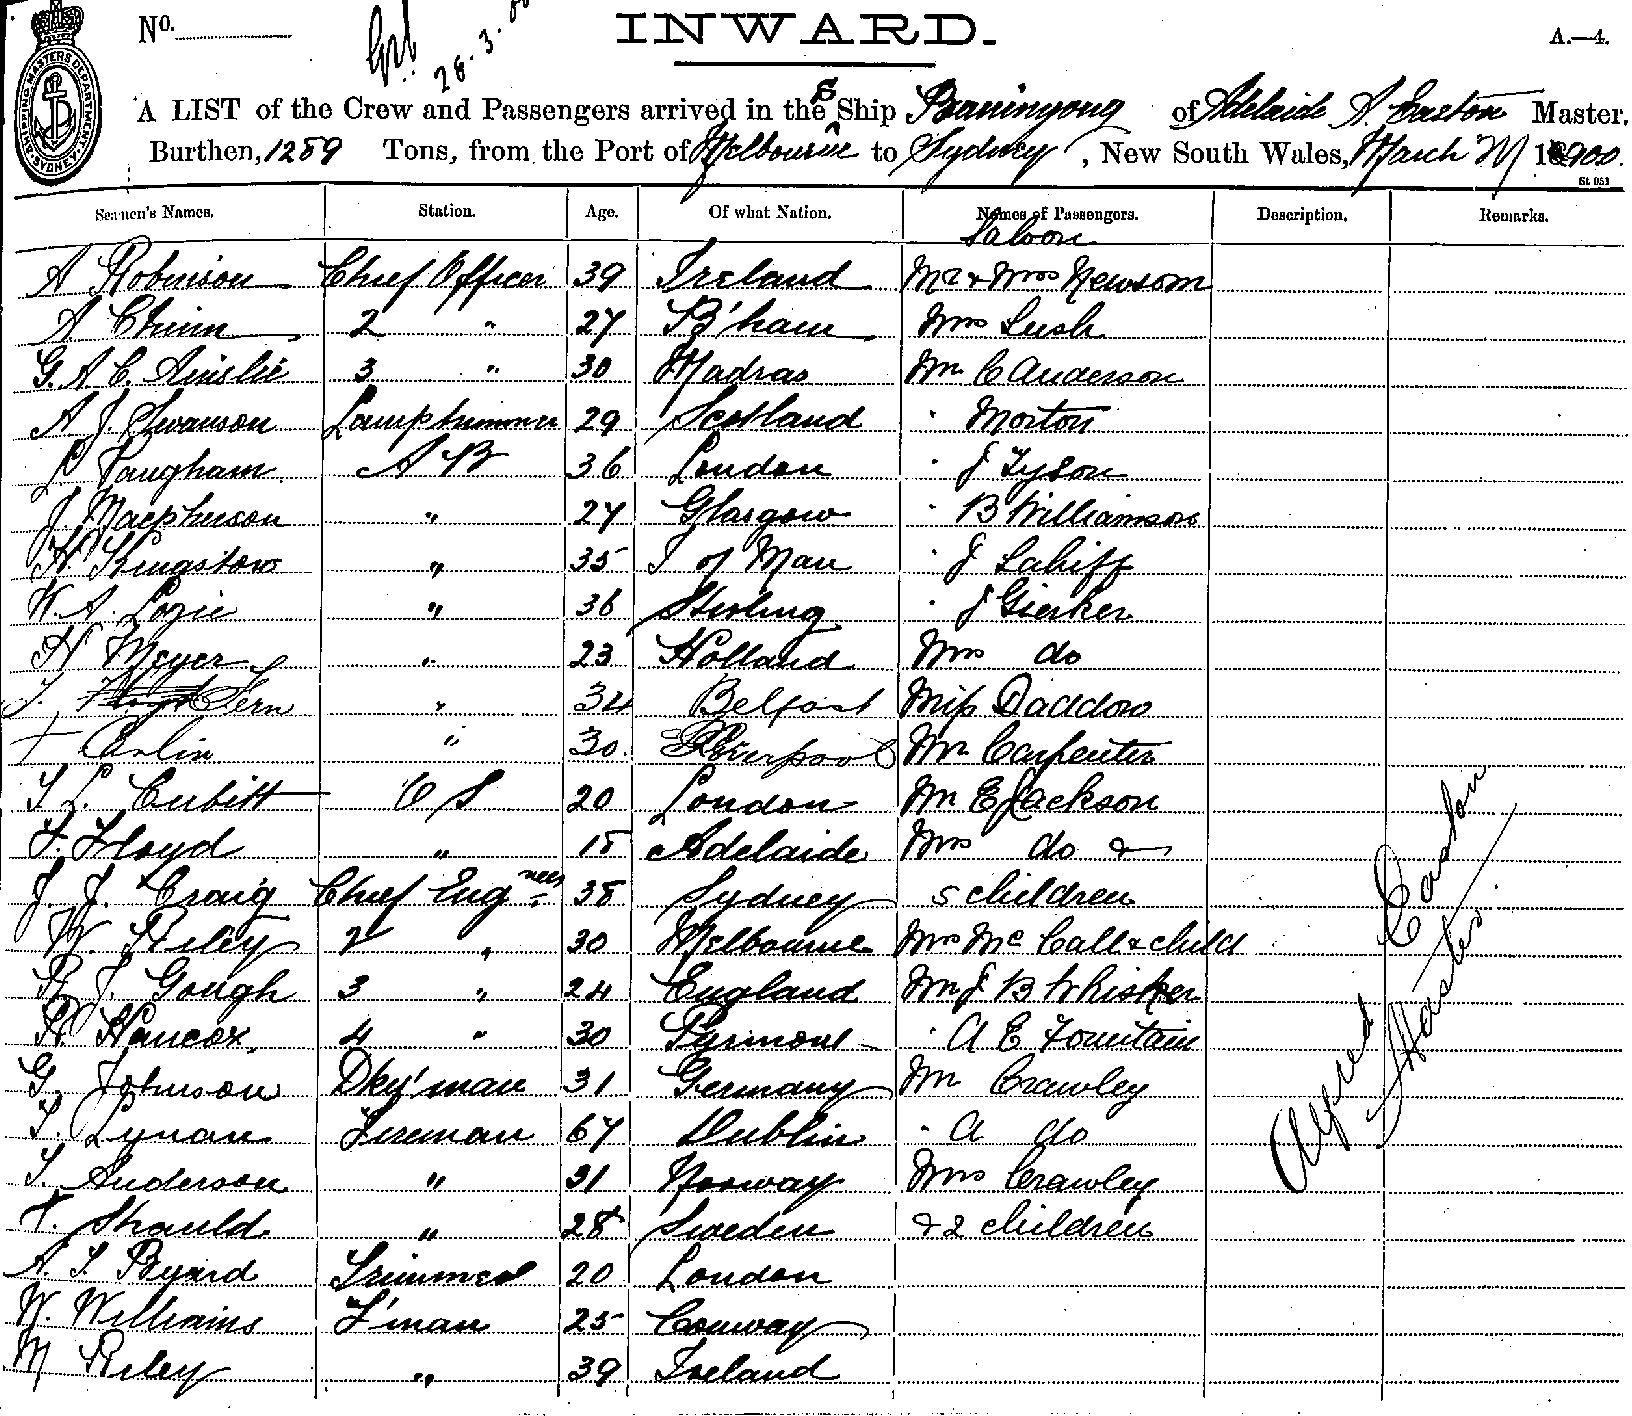 No.
28.3.00
INWARD.
A.—4.
A LIST of the Crew and Passengers arrived in the S Ship Buninyong of Adelaide A. Easton Master,
Burthen, 1289 Tons, from the Port of Melbourne to Sydney, New South Wales, March 1900.
St 053
Seamen's Names. Station. Age. Of what Nation. Names of Passengers. Description. Remarks.
Saloon
A Robinson Chief Officer 39 Ireland Mr & Mrs Newsom
A Chinn 2 " 27 B'ham Mrs Lush
G. A. C. Ainslie 3 " 30 Madras Mr C Anderson
A. J. Swanson Lamptrimmer 29 Scotland " Morton
Vaugham A B 36 London " J Tyson
J. Macpherson " 27 Glasgow " B Williamson
H. Kingston " 35 I of Man " J Lahiff
W. A. Logie " 36 Stirling " J Gierker
H Meyer " 23 Holland Mrs do
Fern " 34 Belfast Miss Daddow
Carlin " 30. Liverpool Mr Carpenter
L. Cubitt O S 20 London Mr E Jackson
F. Lloyd " 18 Adelaide Mrs do &
J. J. Craig Chief Engineer 38 Sydney 5 children
W. Riley 2 " 30 Melbourne Mrs McCall & child
R. J. Gough 3 " 24 England Mr J B Whisker
H. Hancox. 4 " 30 Pyrmont " A E Fountain
G. Johnson Dky'man 31 Germany Mr Crawley
T. Lynan Fireman 67 Dublin " A do
T. Anderson " 31 Norway Mrs Crawley
F. Shauld " 28 Sweden & 2 children
A. T Byard Trimmer 20 London
W. Williams F'man 25 Conway
M Riley " 39 Ireland
Alfred Easton
Master